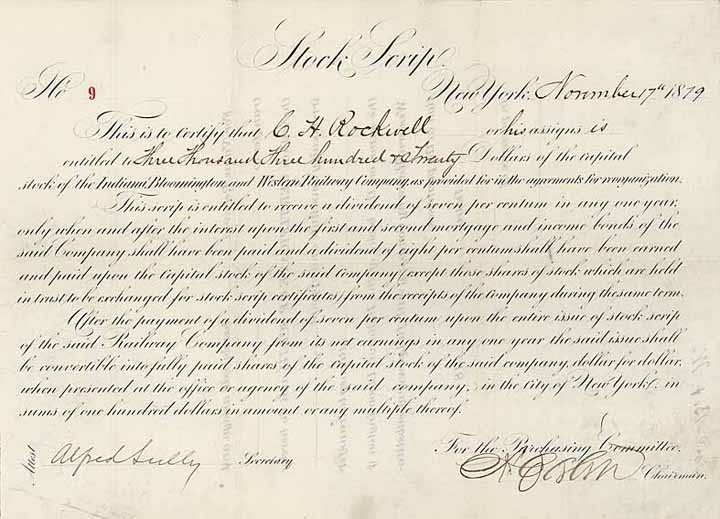 Stock Scrip.
No 9
New York, November 17th 1879
This is to certify that C. H. Rockwell or his assigns is
entitled to Three thousand three hundred & twenty Dollars of the capital
stock of the Indiana, Bloomington, and Western Railway Company, as provided for in the agreements for reorganization.
This scrip is entitled to receive a dividend of seven per centum in any one year,
only when and after the interest upon the first and second mortgage and income bonds of the
said Company shall have been paid and a dividend of eight per centum shall have been earned
and paid upon the Capital stock of the said Company (except those shares of stock which are held
in trust to be exchanged for stock scrip certificates) from the receipts of the Company during the same term.
After the payment of a dividend of seven per centum upon the entire issue of stock scrip
of the said Railway Company from its net earnings in any one year the said issue shall
be convertible into fully paid shares of the Capital stock of the said company, dollar for dollar,
when presented at the office or agency of the said company, in the City of New York, in
sums of one hundred dollars in amount or any multiple thereof.
For the Purchasing Committee.
Attest Alfred Sully Secretary
Chairman.